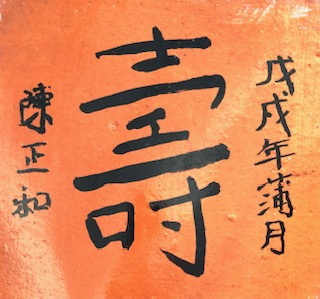 戊戌年蒲月
壽
陳正和